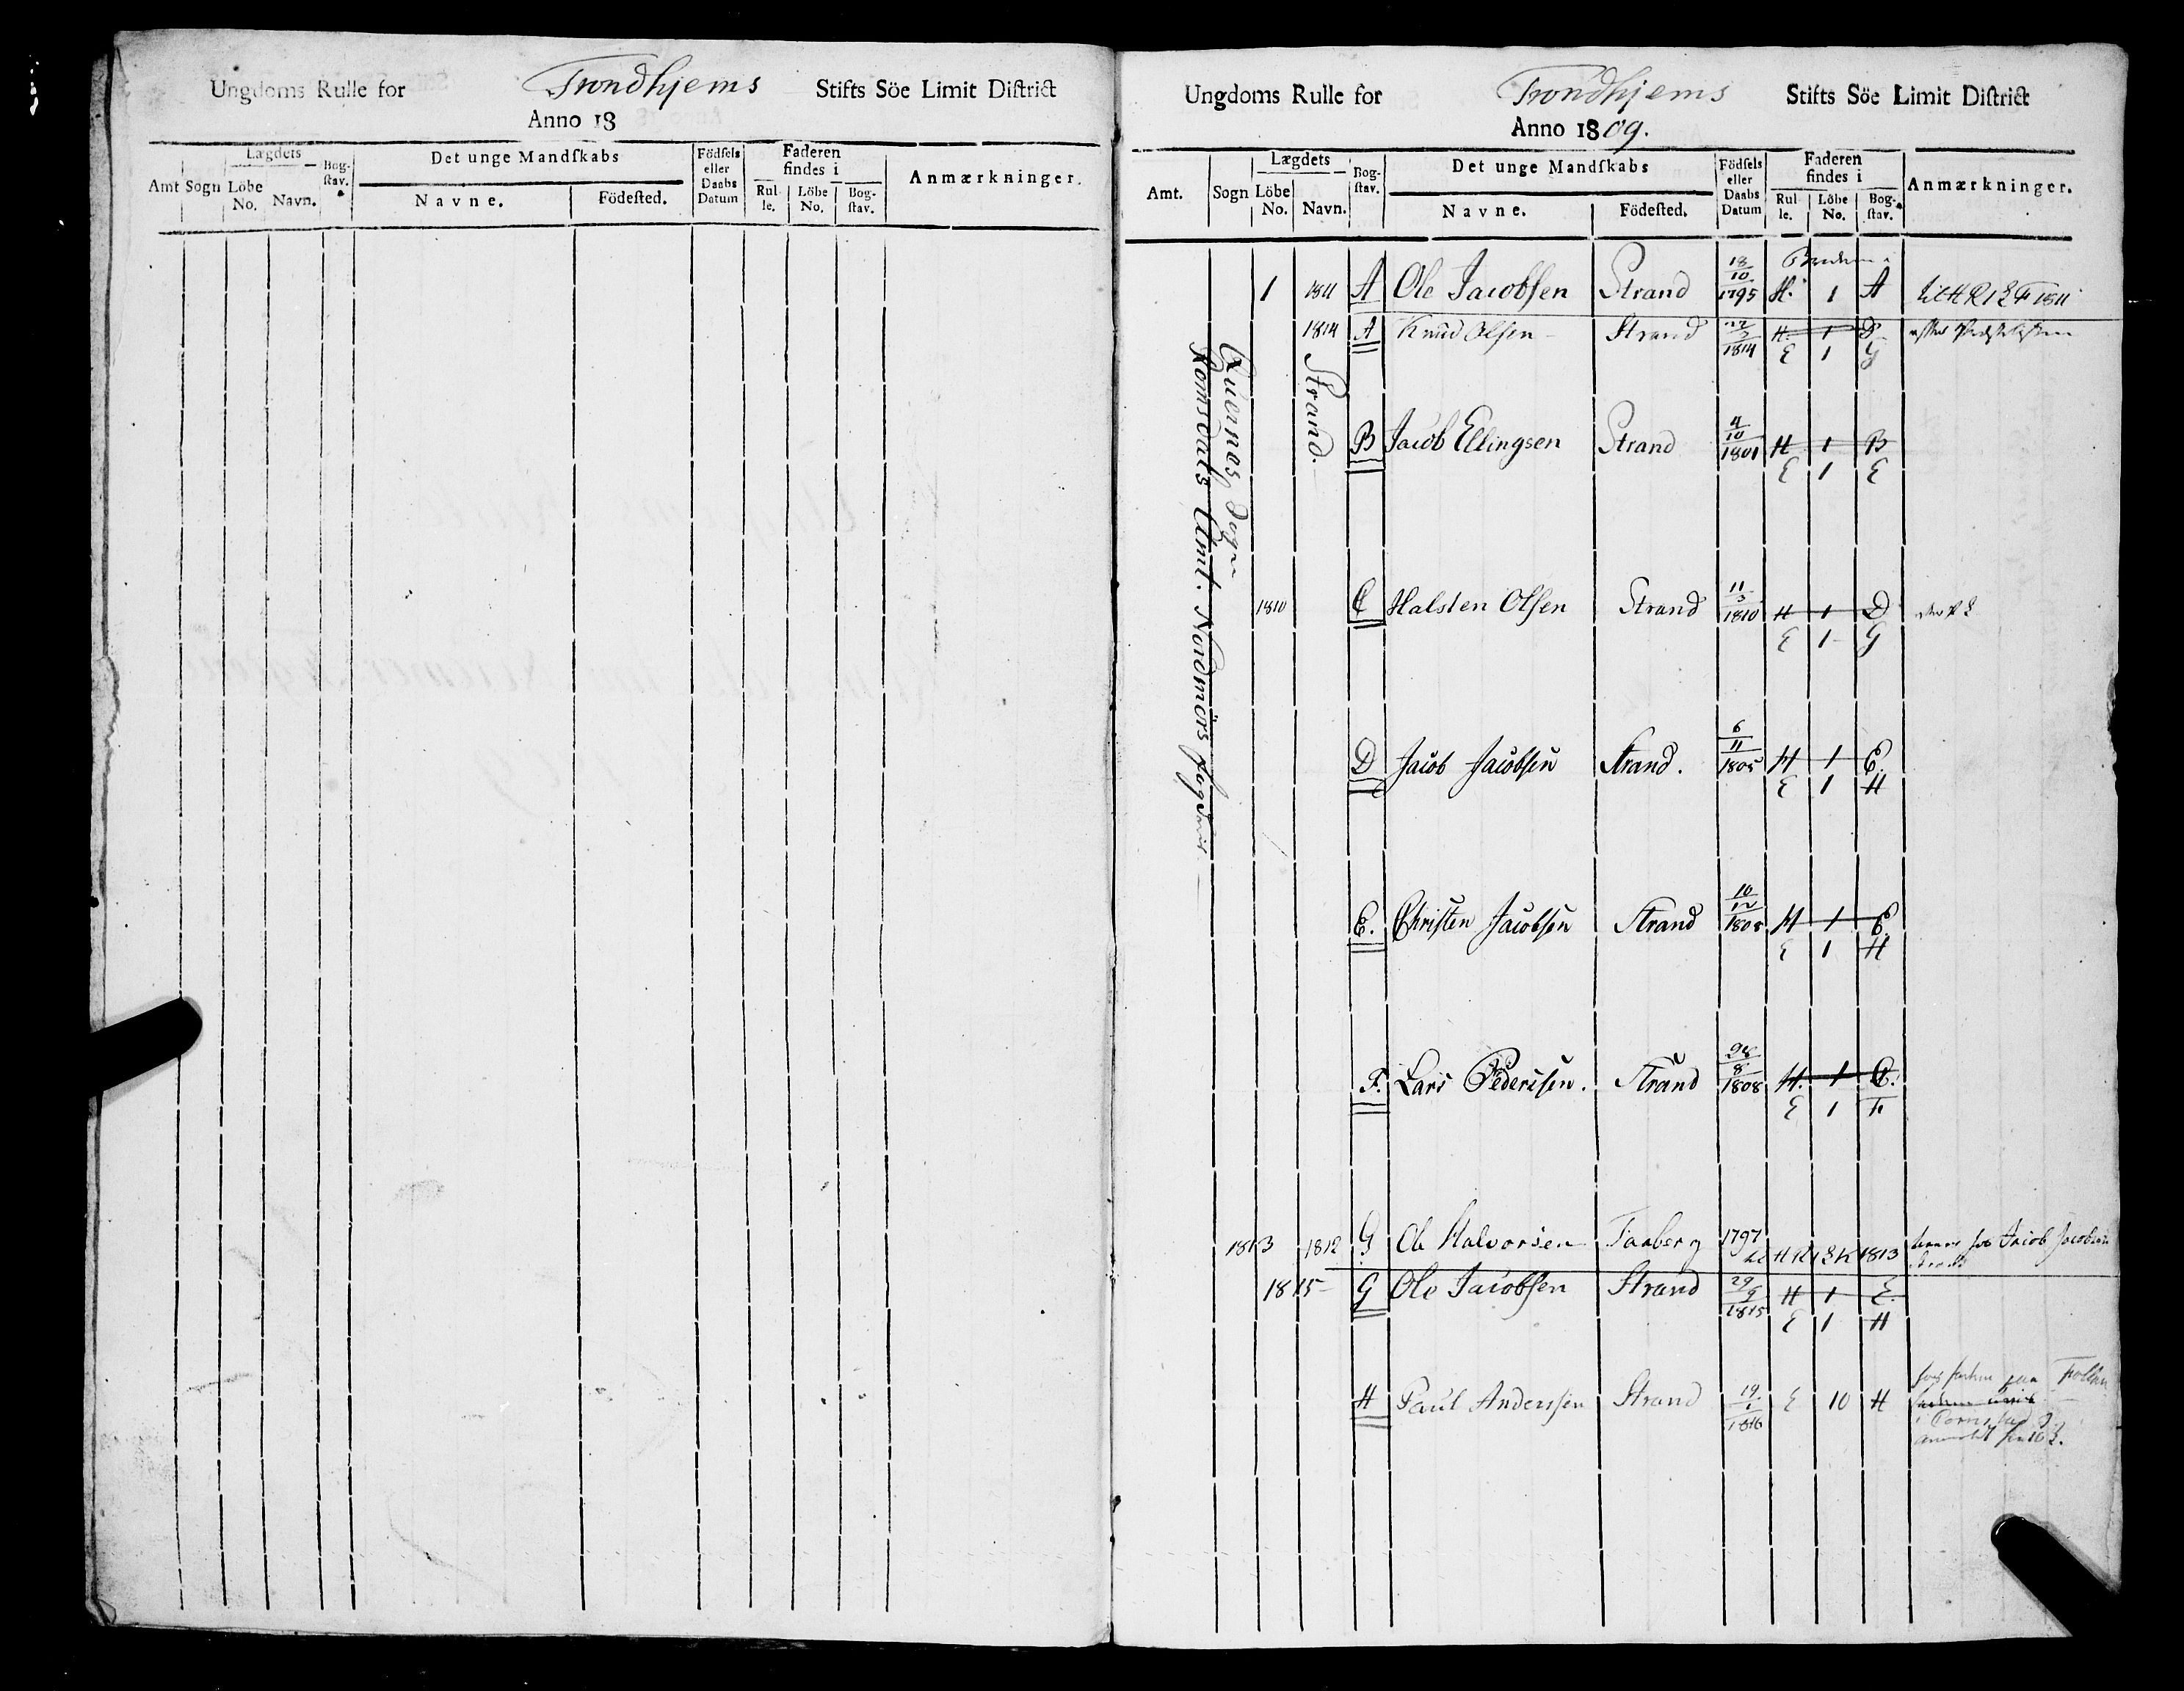 Ungdoms Rulle for Trondhjems Stifts Söe Limit District
Anno 18
Amt Sogn Lægdets Löbe No. Navn. Bog-stav. Det unge Mandſkabs Navne. Födeſted. Födſels eller Daabs Datum Faderen findes i Rul-le. Löbe No. Bog-ſtav. Anmærkninger.
Ungdoms Rulle for Trondhjems Stifts Söe Limit District
Anno 1809.
Amt. Sogn Lægdets Löbe No. Navn. Bog-ſtav. Det unge Mandſkabs Navne. Födeſted. Födſels eller Daabs Datum Faderen findes i Rul-le. Löbe No. Bog-ſtav. Anmærkninger.
Romsdals Amt. Nordmörs
Quernes Sogn
Strand.
1 1811 A Ole Jacobsen Strand 18/10 1795 H. 1 A til H R 1 L F 1811
1814 A Knud Olsen Strand 1814 H. 1 D
E 1 G
B Jacob Ellingsen Strand 4/10 1801 H 1 B
E 1 E
1810 C Halsten Olsen Strand 11/3 1810 H 1 D
E 1 G
D Jacob Jacobsen Strand. 6/11 1805 H 1 E
E 1 H
E. Christen Jacobsen Strand 10/12 1808 H 1 E
E 1 H
F. Lars Pedersen. Strand 28/8 1808 H. 1 C.
E 1 F
1813 1812 G Ole Halvorsen Taaberg 1797 til H R 1 L K 1813 Jacob Jacobsen
Strand
1815 G Ole Jacobsen Strand 29/9 1815 H 1 E.
E 1 H
H Paul Andersen Strand 19/1 1816 E 10 H